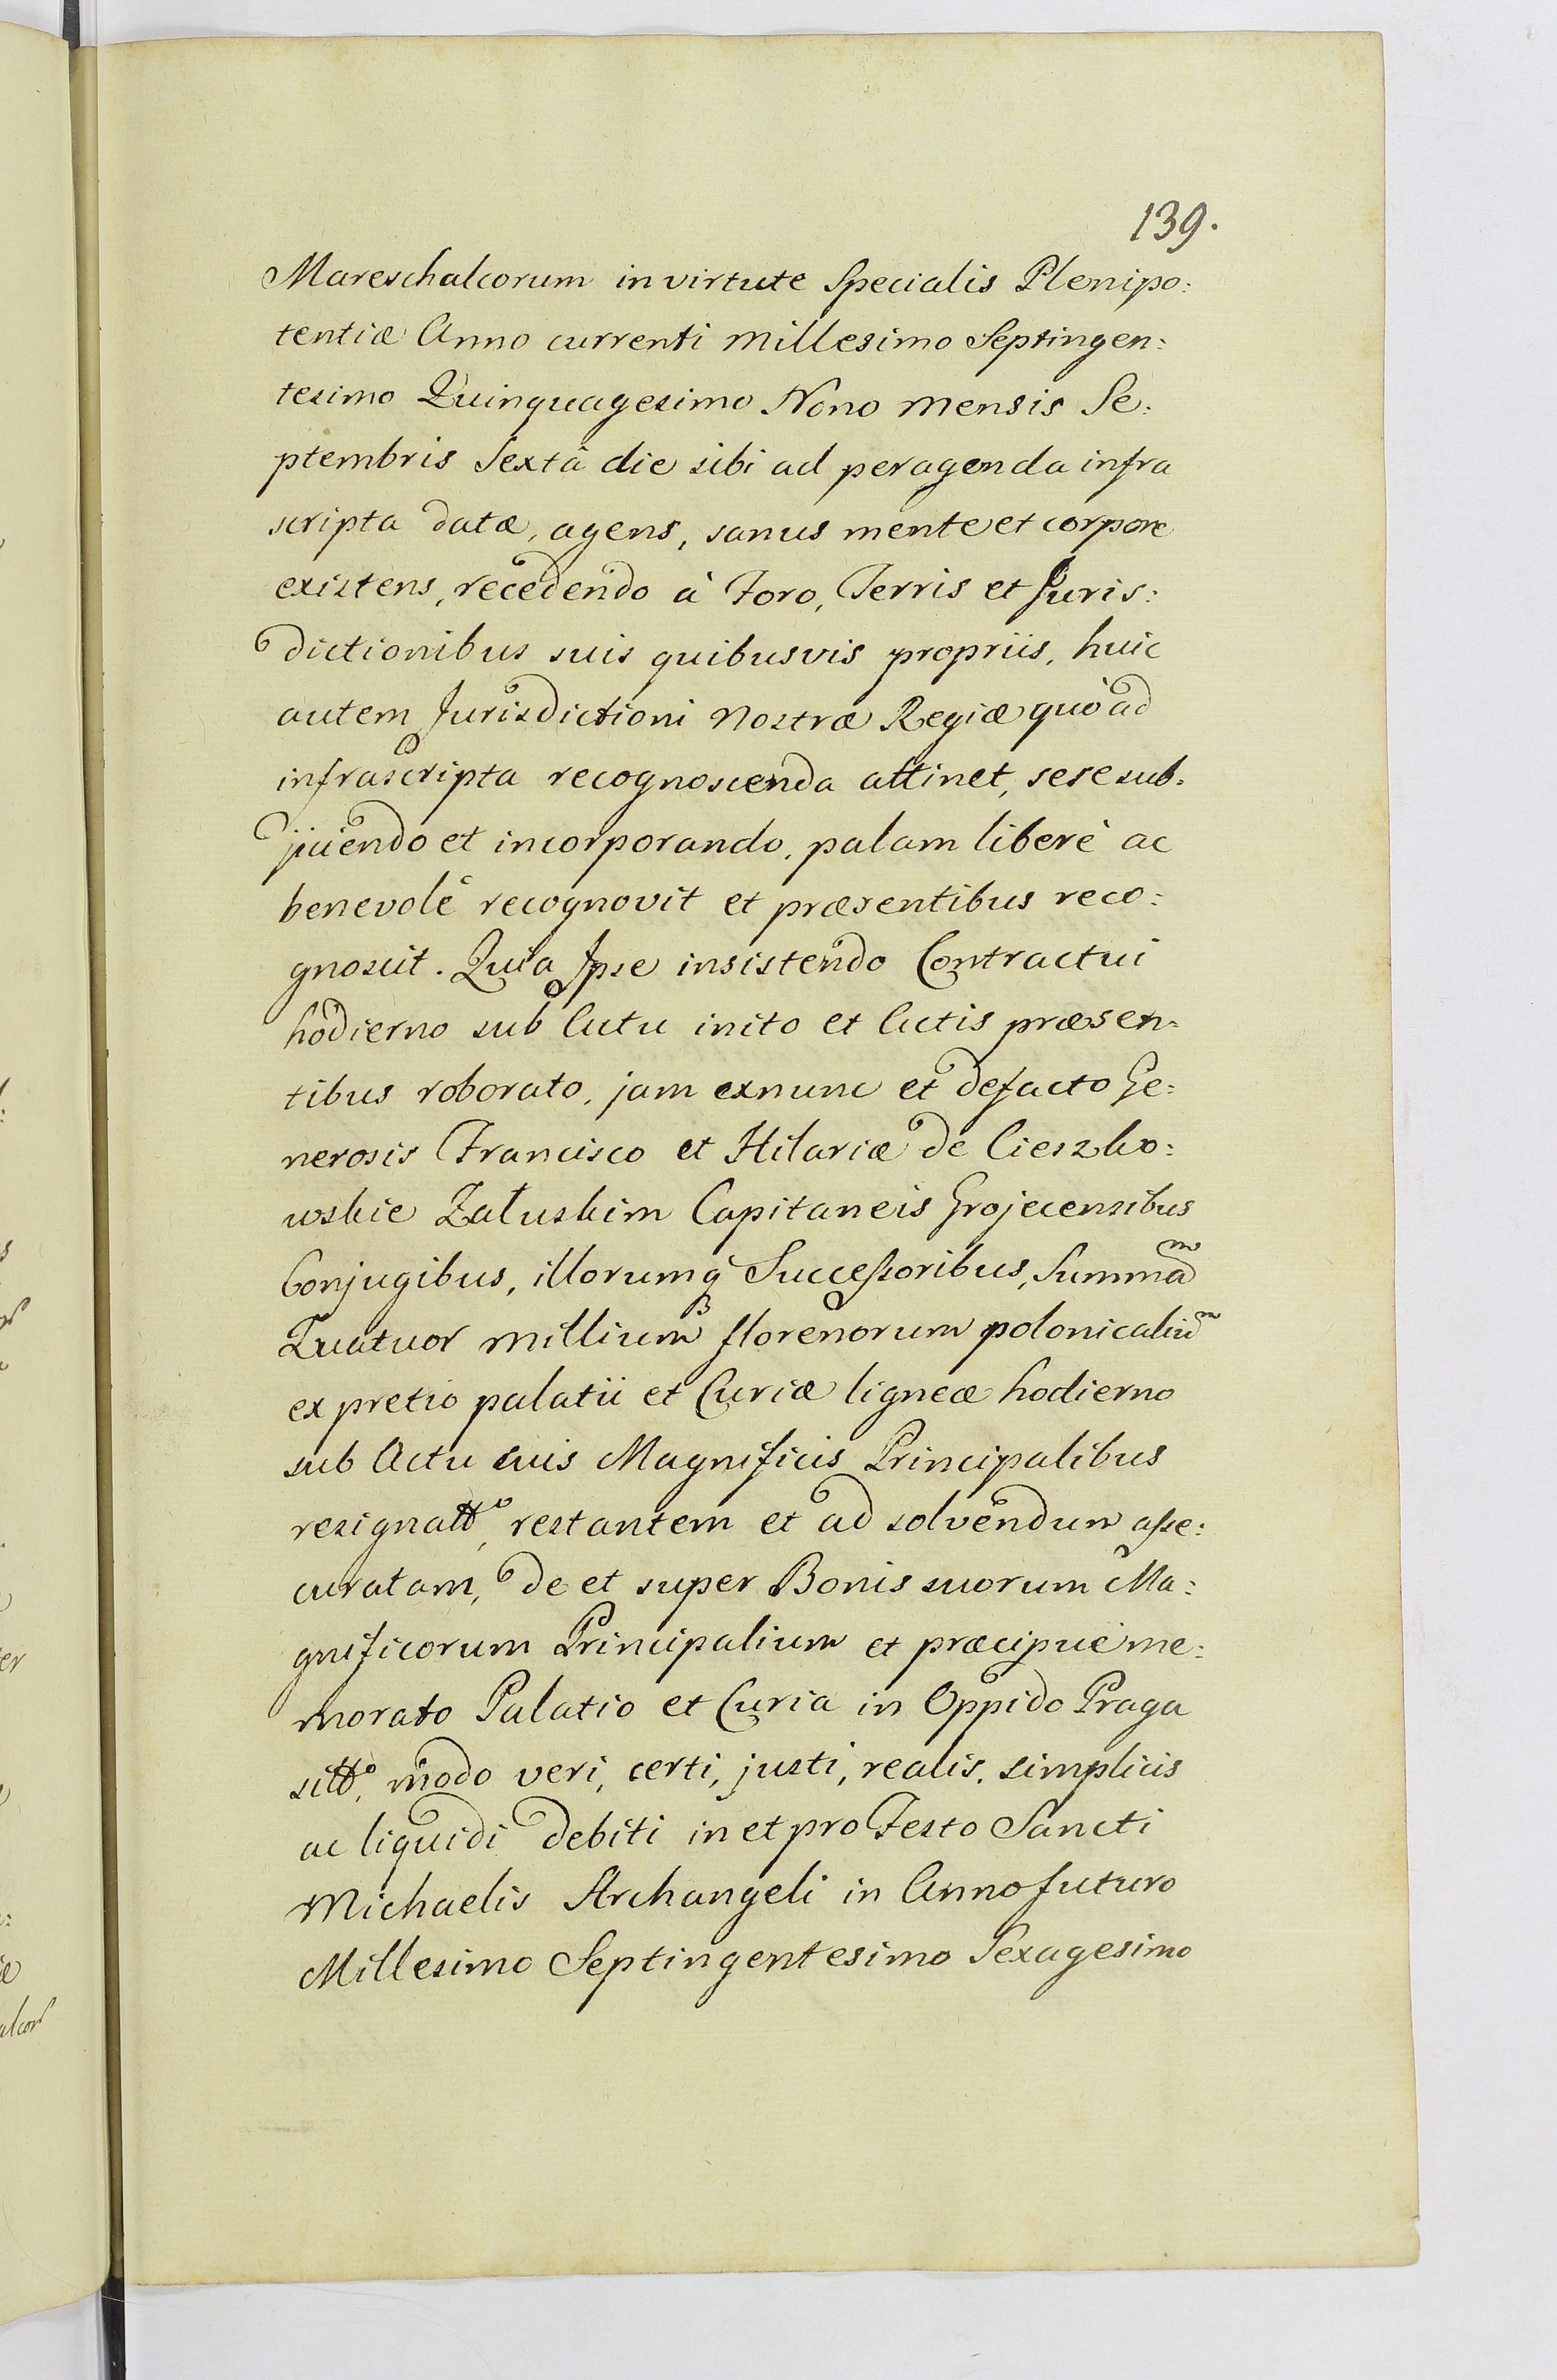 139.
Mareschalcorum in virtute Specialis Plenipo:
tentiæ Anno currenti Millesimo Septingen:
tesimo Quinquagesimo Nono Mensis Se:
ptembris Sextâ die sibi ad peragenda infra
scripta datæ, agens, sanus mente et corpore
existens, recedendo à Foro, Terris et Juris:
dictionibus suis quibusvis propriis, huic
autem Jurisdictioni Nostræ Regiæ quò ad
infrascripta recognoscenda attinet, sese sub:
jiciendo et incorporando, palam liberè ac
benevolè recognovit et præsentibus reco:
gnoscit. Quia Ipse insistendo Contractui
hodierno sub Actu inito et Actis præsen:
tibus roborato, jam exnunc et defacto Ge:
nerosis Francisco et Hilariæ de Cieszko:
wskie Załuskim Capitaneis Grojecensibus
Conjugibus, illorumq Successoribus, Summã
Quatuor Millium florenorum polonicaliũ
ex pretio palatii et Curiæ ligneæ hodierno
sub Actu suis Magnificis Principalibus
resignatto, restantem et ad solvendum asse:
curatam, de et super Bonis suorum Ma:
gnificorum Principalium et præcipuè me:
morato Palatio et Curia in Oppido Praga
sitto, modo veri, certi, justi, realis, simplicis
ac liquidi debiti in et pro Festo Sancti
Michaelis Archangeli in Anno futuro
Millesimo Septingentesimo Sexagesimo